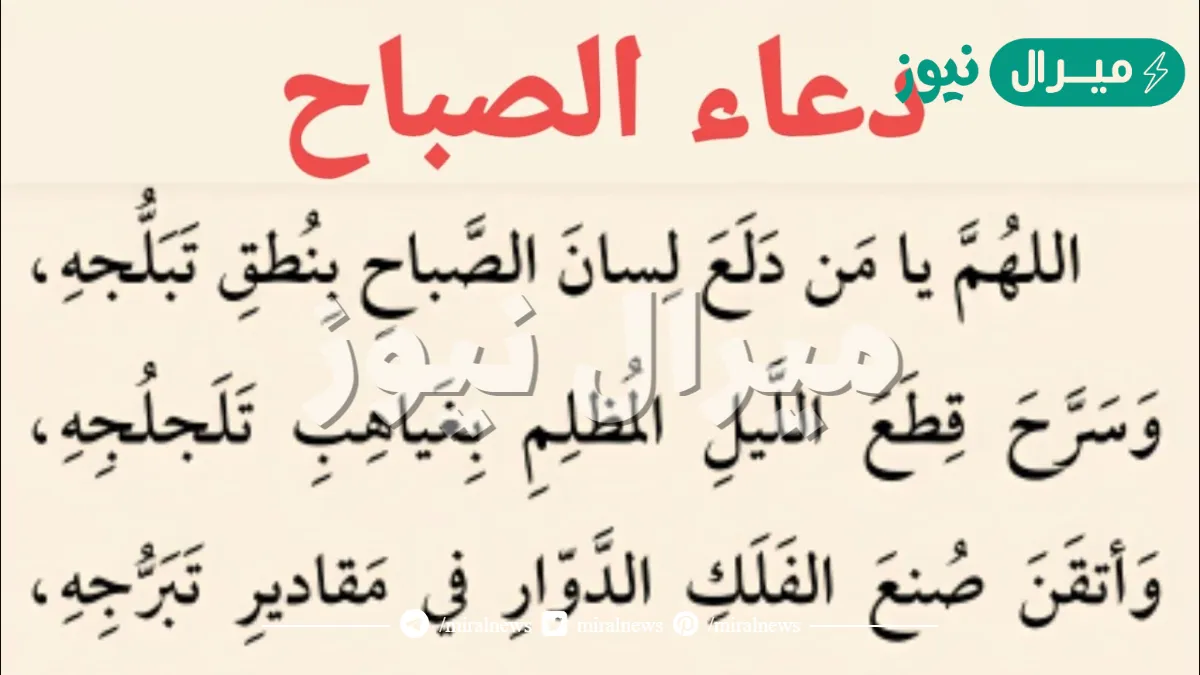 ميرال نيوز
دعاء الصباح
اللهُمَّ يا مَن دَلَعَ لِسانَ الصَّباحِ بِنُطقِ تَبَلُّجهِ،
وَسَرَّحَ قِطَعَ اللَّيلِ المُظلِمِ بِغَياهِبِ تَلَجلُجِهِ،
وَأتقَنَ صُنعَ الفَلَكِ الدَّوّارِ في مَقاديرِ تَبَرُّجِهِ،
ميرال نيوز
/miralnews miralnews /miralnews